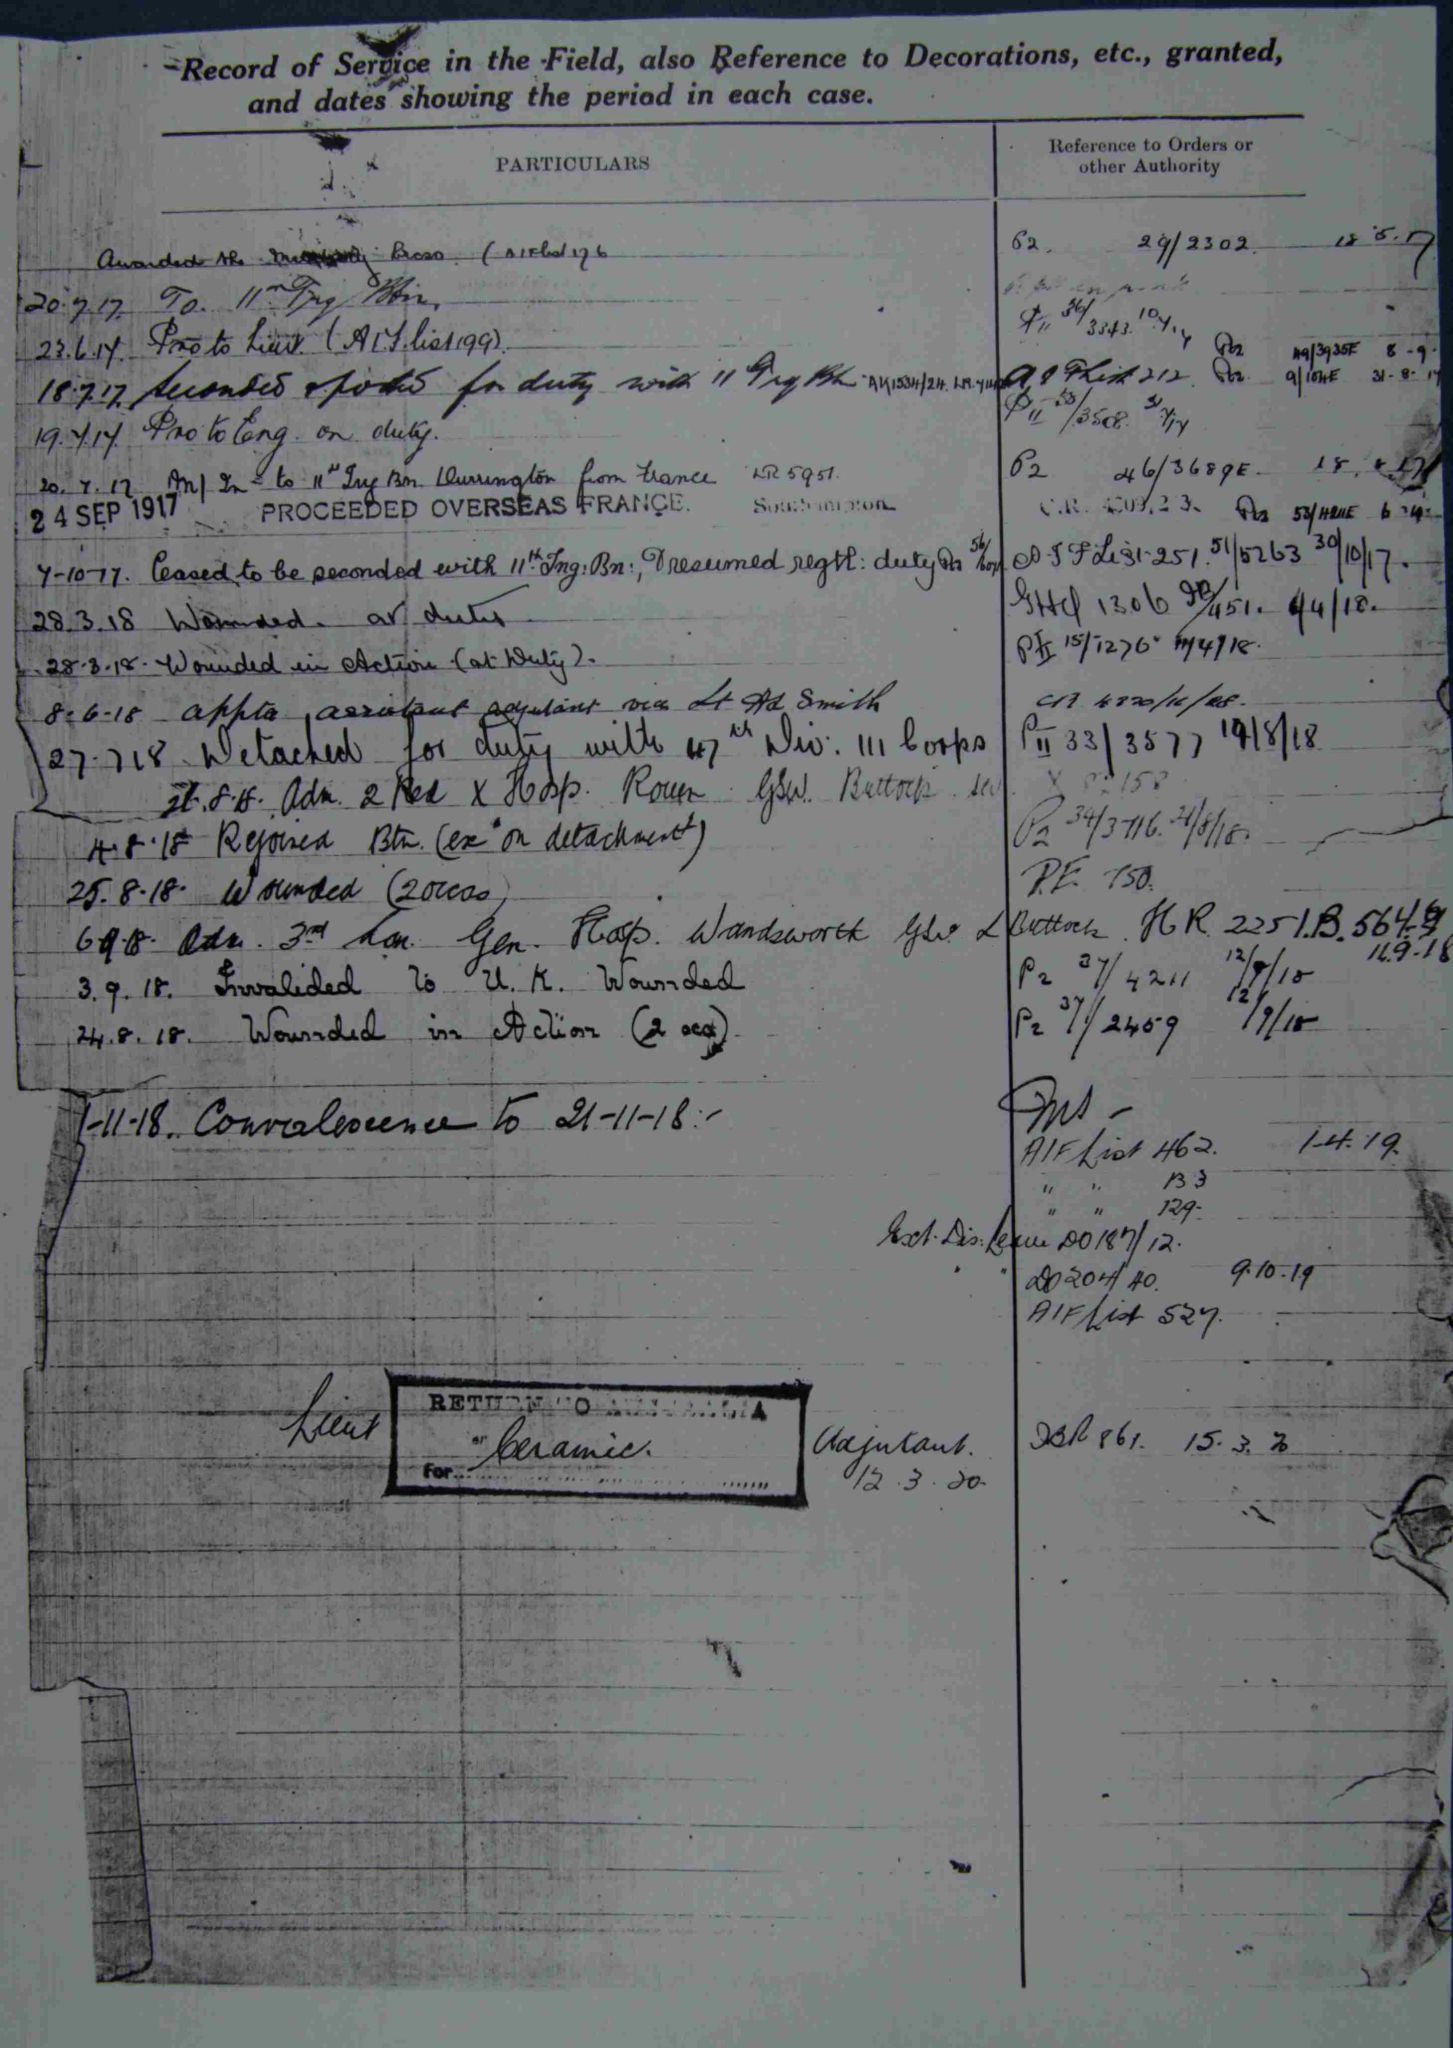 Record of Service in the Field, also Reference to Decorations, etc., granted,
and dates showing the period in each case.
PARTICULARS
Reference to Orders or
other Authority
Awarded the (AIF list 176 P2. 29/2302 18.5.17
20.7.17. To. 11th Trg Btn.
23.6.17. Pro to Lieut. (A I F. list 199). 36/3343
18.7.17. Seconded for duty with 11 Trg Bn AK1534/24. A I F List 212. 31-8-17
19.7.17. Pro to Eng. on duty. P II /3508.
20.7.17. M/In to 11th Trg Bn. Durrington from France LR 5951. P2 46/3689E 18.
24 SEP 1917 PROCEEDED OVERSEAS FRANCE. Southampton
7-10-17. Ceased to be seconded with 11th Tng: Bn:, & resumed regtl: duty A I F List 251. 51/5263 30/10/17.
28.3.18 Wounded. at duty GHQ 1306 /451. 4/4/18.
28-3-18. Wounded in Action (at Duty). P II 15/1276 /4/18.
8-6-18 appts assistant adjutant vice Lt Smith
27.7.18 Detached for duty with 47th Div. III Corps P II 33/3577 19/8/18
.8.18. Adm. 2 Red X Hosp. Rouen GSW. Buttock
4.8.18 Rejoined Btn. (ex on detachment) P2 34/3716. 21/8/18.
25.8.18. Wounded (2 occas)
6.9.18. Adm. 3rd Lon. Gen. Hosp. Wandsworth GSW. L Buttock. H R 2251.B.
3.9.18. Invalided to U.K. Wounded P2 37/4211 12/9/18
24.8.18. Wounded in Action (2 occ). P2 37/2459 12/9/18
1-11-18. Convalescence to 21-11-18:-
AIF List 462. 1.4.19.
" " 133
" " 129.
Ext. Dis. Leave DO 187/12.
" " DO 204/40. 9.10.19
AIF List 527.
Lieut
RETURN TO AUSTRALIA
Ceramic.
For
Adjutant.
12.3.20.
861. 15.3.20